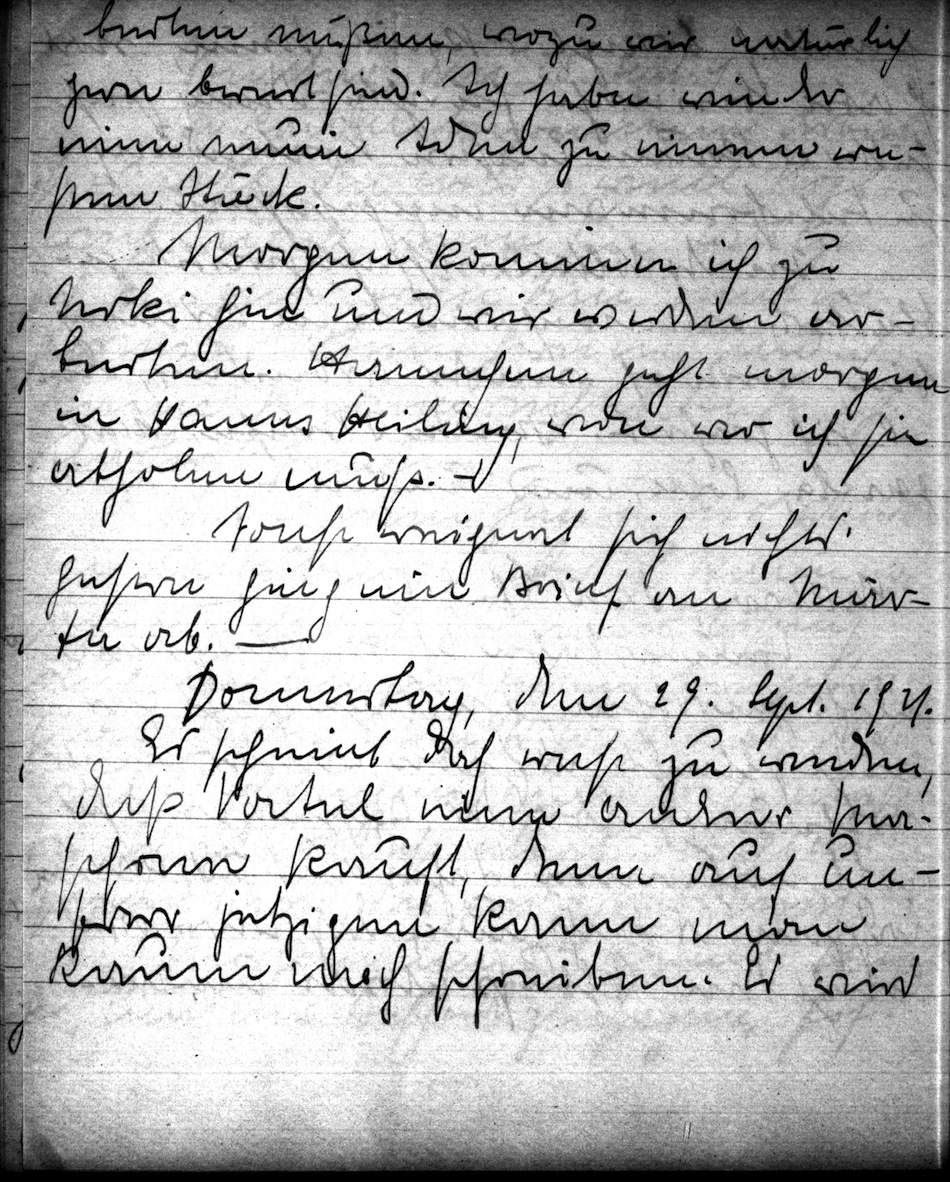 beiten müßen, wozu wir natürlich
gern bereit sind. Ich habe wieder
eine neue Idee zu einem neu-
en Stück.
Morgen komme ich zu
hin und wir werden ar-
beiten. Hannchen geht morgen
in Hanns Heiling, von wo ich sie
abholen muß. –
Sonst ereignet sich nichts.
Gestern ging ein Brief an Mar-
ta ab. —
Donnerstag, den 29. Sept. 1921.
Es scheint doch was zu werden,
daß Vatel eine andere Ma-
schine kauft, denn auf un-
serer jetzigen kann man
kaum noch schreiben. Es wird